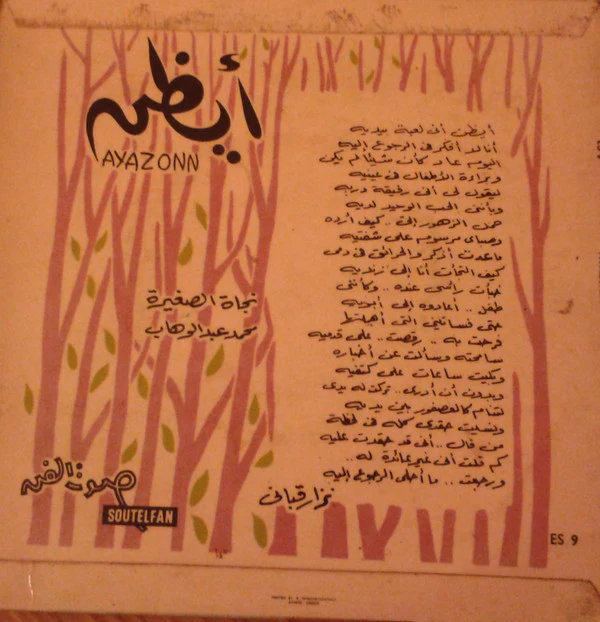 أيظن
AYAZONN
أيظن أني لعبة بيديه
أنا لا أفكر في الرجوع إليه
اليوم عاد كأن شيئا لم يكن
وبراءة الأطفال في عينيه
ليقول لي أني رفيقة دربه
وبأنني الحب الوحيد لديه
حمل الزهور إليّ .. كيف أرده
وصباي مرسوم على شفتيه
ما عدت أذكر والحرائق في دمي
كيف التجأت أنا إلى زنديه
خبأت رأسي عنده .. وكأنني
طفل .. أعادوه إلى أبويه
حتى فساتيني التي أهملتها
فرحت به .. رقصت .. على قدميه
سامحته وسألت عن أخباره
وبكيت ساعات على كتفيه
وبدون أن أدري .. تركت له يدي
لتنام كالعصفور بين يديه
ونسيت حقدي كله في لحظة
من قال .. أني قد حقدت عليه
كم قلت أني غير عائدة له ..
ورجعت .. ما أحلى الرجوع إليه
نزار قباني
نجاة الصغيرة
محمد عبد الوهاب
صوت الفن
SOUTELFAN
ES 9